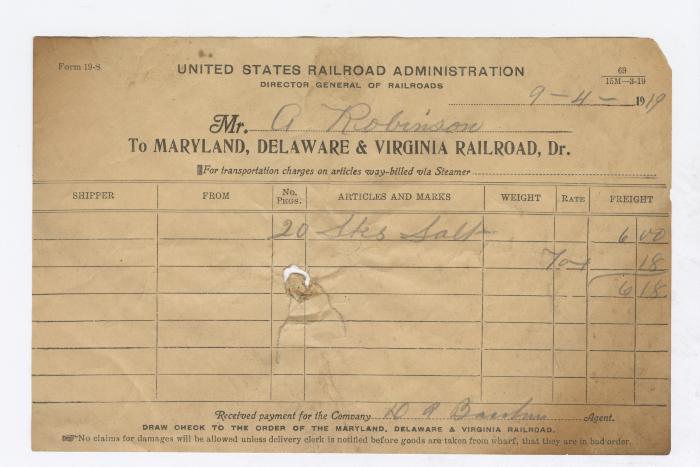 Form 19-S
UNITED STATES RAILROAD ADMINISTRATION
DIRECTOR GENERAL OF RAILROADS
69
15M—3-19
9-4- 1919
Mr. A Robinson
To MARYLAND, DELAWARE & VIRGINIA RAILROAD, Dr.
For transportation charges on articles way-billed via Steamer
SHIPPER FROM No. Pkgs. ARTICLES AND MARKS WEIGHT RATE FREIGHT
20 Sks Salt 6 00
18
6 18
Received payment for the Company Agent.
DRAW CHECK TO THE ORDER OF THE MARYLAND, DELAWARE & VIRGINIA RAILROAD.
☞No claims for damages will be allowed unless delivery clerk is notified before goods are taken from wharf, that they are in bad order.